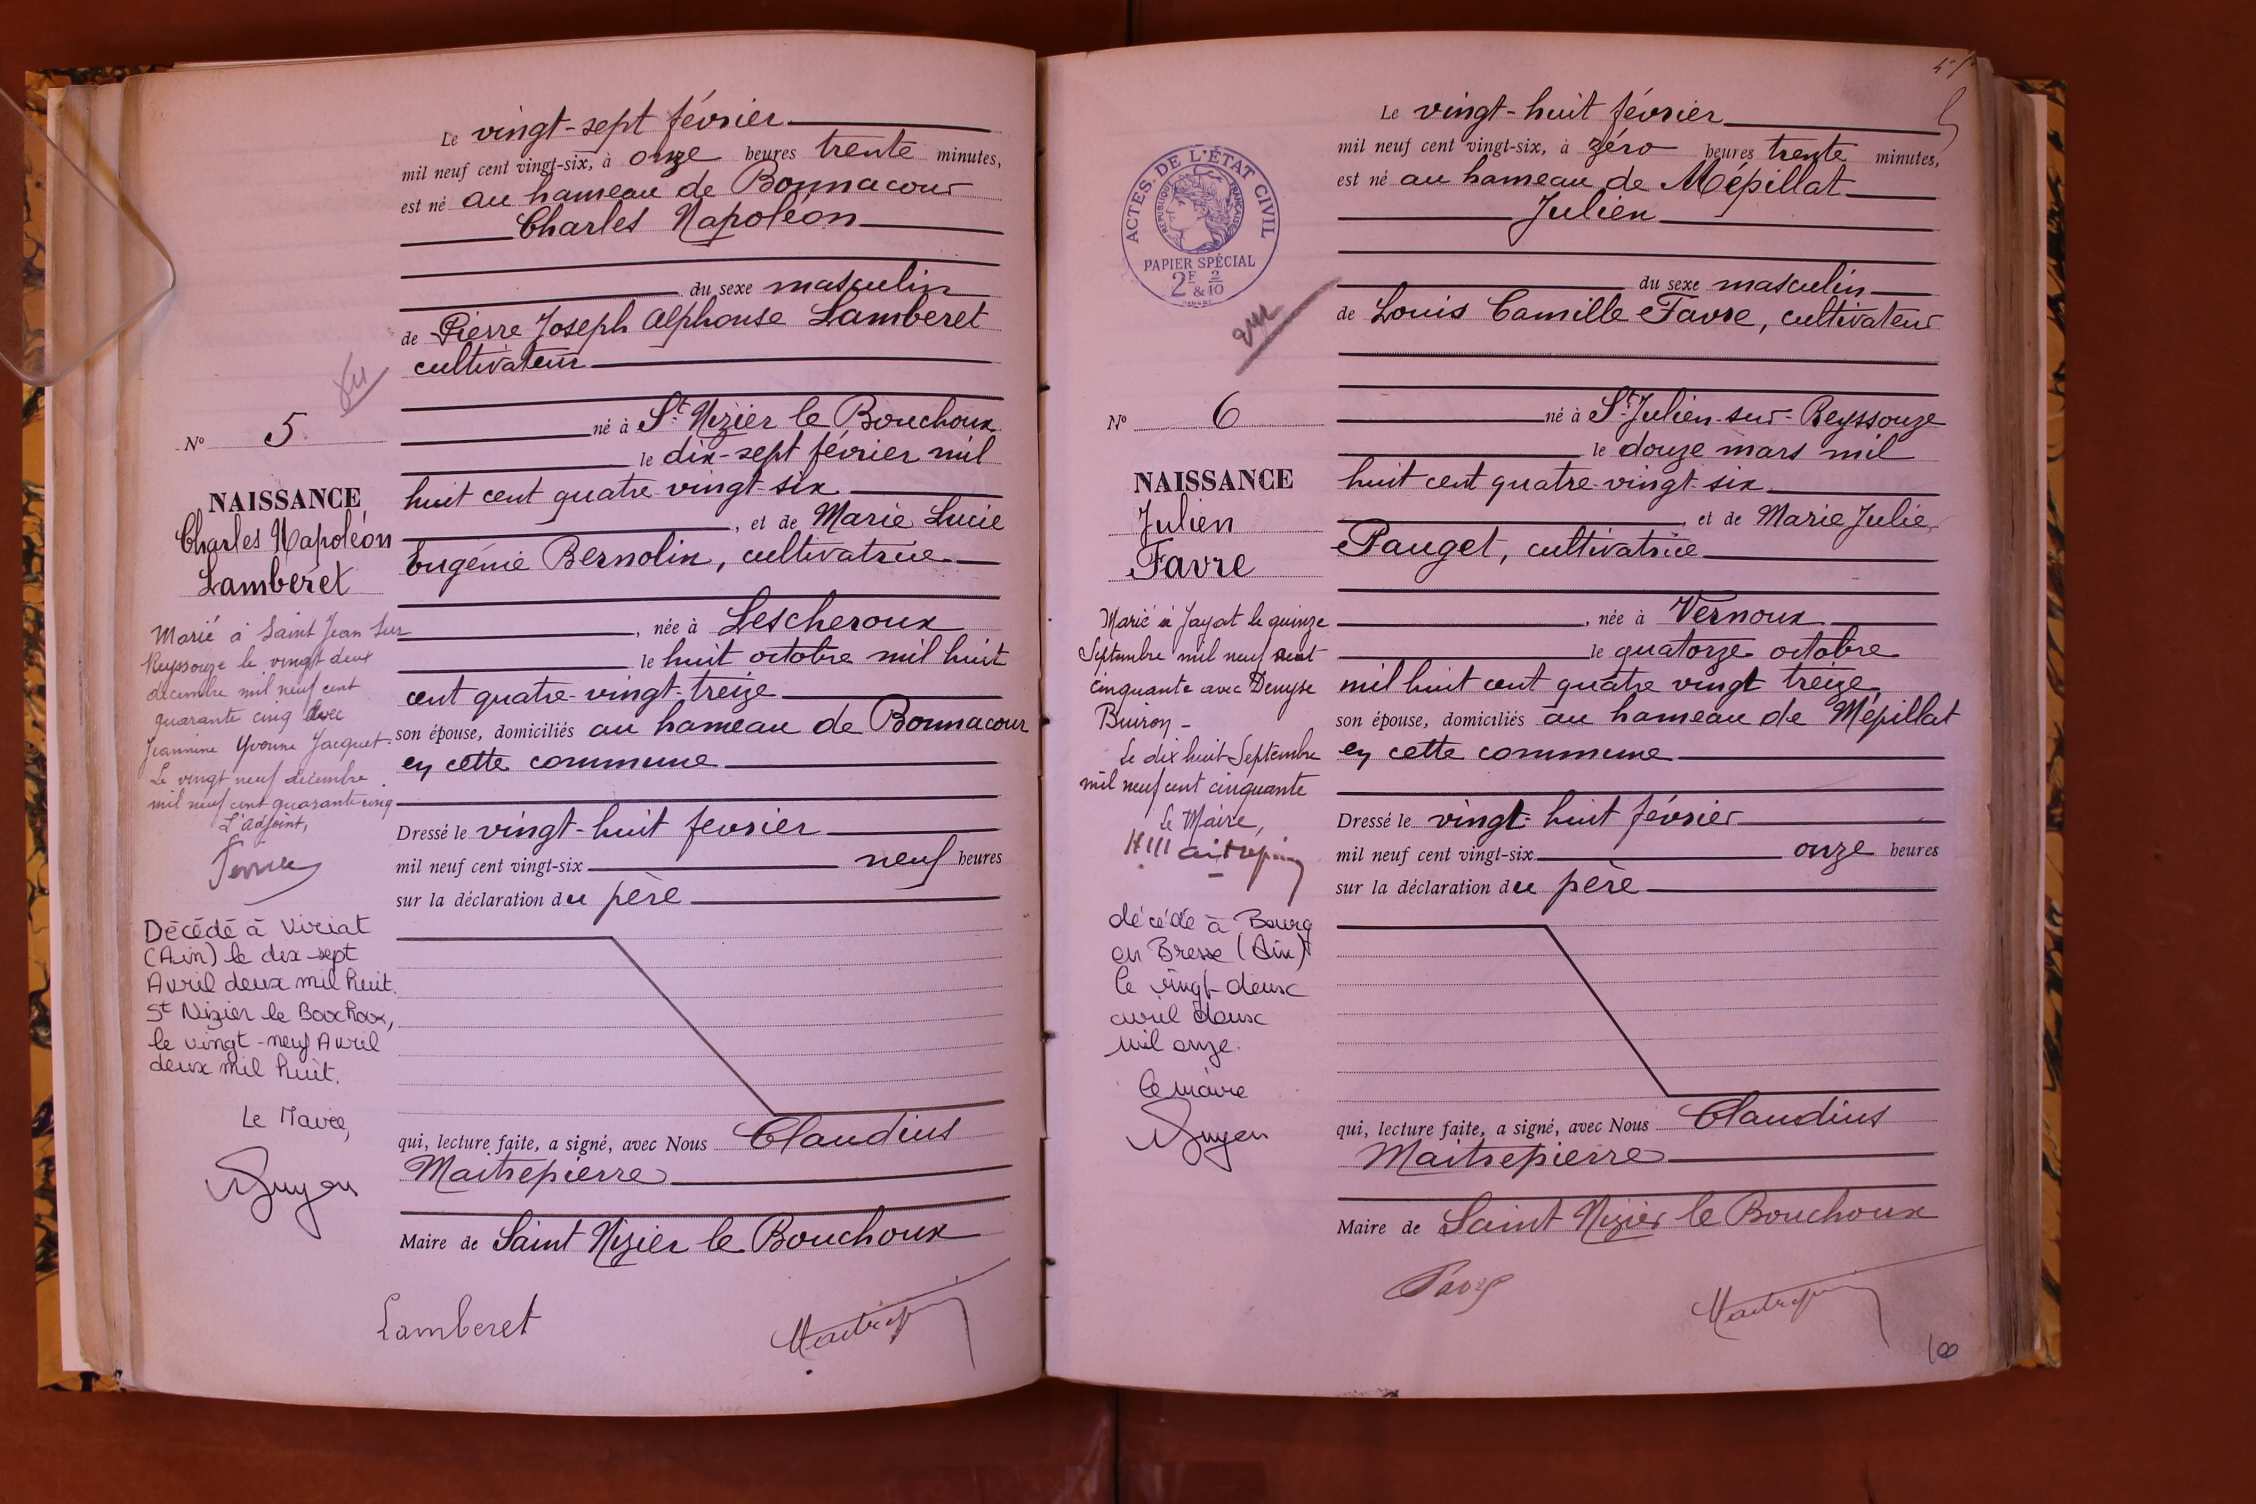 Le vingt-sept février
mil neuf cent vingt-six, à onze heures trente minutes,
est né au hameau de Bonnacour
Charles Napoléon
du sexe masculin
de Pierre Joseph Alphonse Lamberet
cultivateur
né à St. Nizier le Bouchoux
le dix-sept février mil
huit cent quatre vingt-six
, et de Marie Lucie
Eugénie Bernolin, cultivatrice
, née à Lescheroux
le huit octobre mil huit
cent quatre-vingt-treize
son épouse, domiciliés au hameau de Bonnacour
en cette commune
Dressé le vingt-huit fevrier
mil neuf cent vingt-six neuf heures
sur la déclaration du père
qui, lecture faite, a signé, avec Nous Claudius
Maitrepierre
Maire de Saint Nizier le Bouchoux
Lamberet
vu
No 5
NAISSANCE
Charles Napoléon
Lamberet
Marié à Saint Jean sur
Reyssouze le vingt deux
décembre mil neuf cent
quarante cinq avec
Jeannine Yvonne Jacquet
Le vingt neuf décembre
mil neuf cent quarante cinq
L'adjoint,
Décédé à Viriat
(Ain) le dix-sept
Avril deux mil huit.
St Nizier le Bouchoux,
le vingt-neuf Avril
deux mil huit.
Le Maire,
Le vingt-huit février
mil neuf cent vingt-six, à zéro heures trente minutes,
est né au hameau de Mépillat
Julien
du sexe masculin
de Louis Camille Favre, cultivateur
né à St. Julien-sur-Reyssouze
le douze mars mil
huit cent quatre-vingt-six
, et de Marie Julie
Pauget, cultivatrice
, née à Vernoux
le quatorze octobre
mil huit cent quatre vingt treize
son épouse, domiciliés au hameau de Mépillat
en cette commune
Dressé le vingt-huit février
mil neuf cent vingt-six onze heures
sur la déclaration du père
qui, lecture faite, a signé, avec Nous Claudius
Maitrepierre
Maire de Saint Nizier le Bouchoux
Favre
100
ACTES DE L'ÉTAT CIVIL
RÉPUBLIQUE FRANÇAISE
PAPIER SPÉCIAL
2F & 2/10
vu
No 6
NAISSANCE
Julien
Favre
Marié à Jayat le quinze
Septembre mil neuf cent
cinquante avec Denyse
Buiron -
Le dix huit Septembre
mil neuf cent cinquante
Le Maire,
décédé à Bourg
en Bresse (Ain)
le vingt-deux
avril deux
mil onze.
Le maire